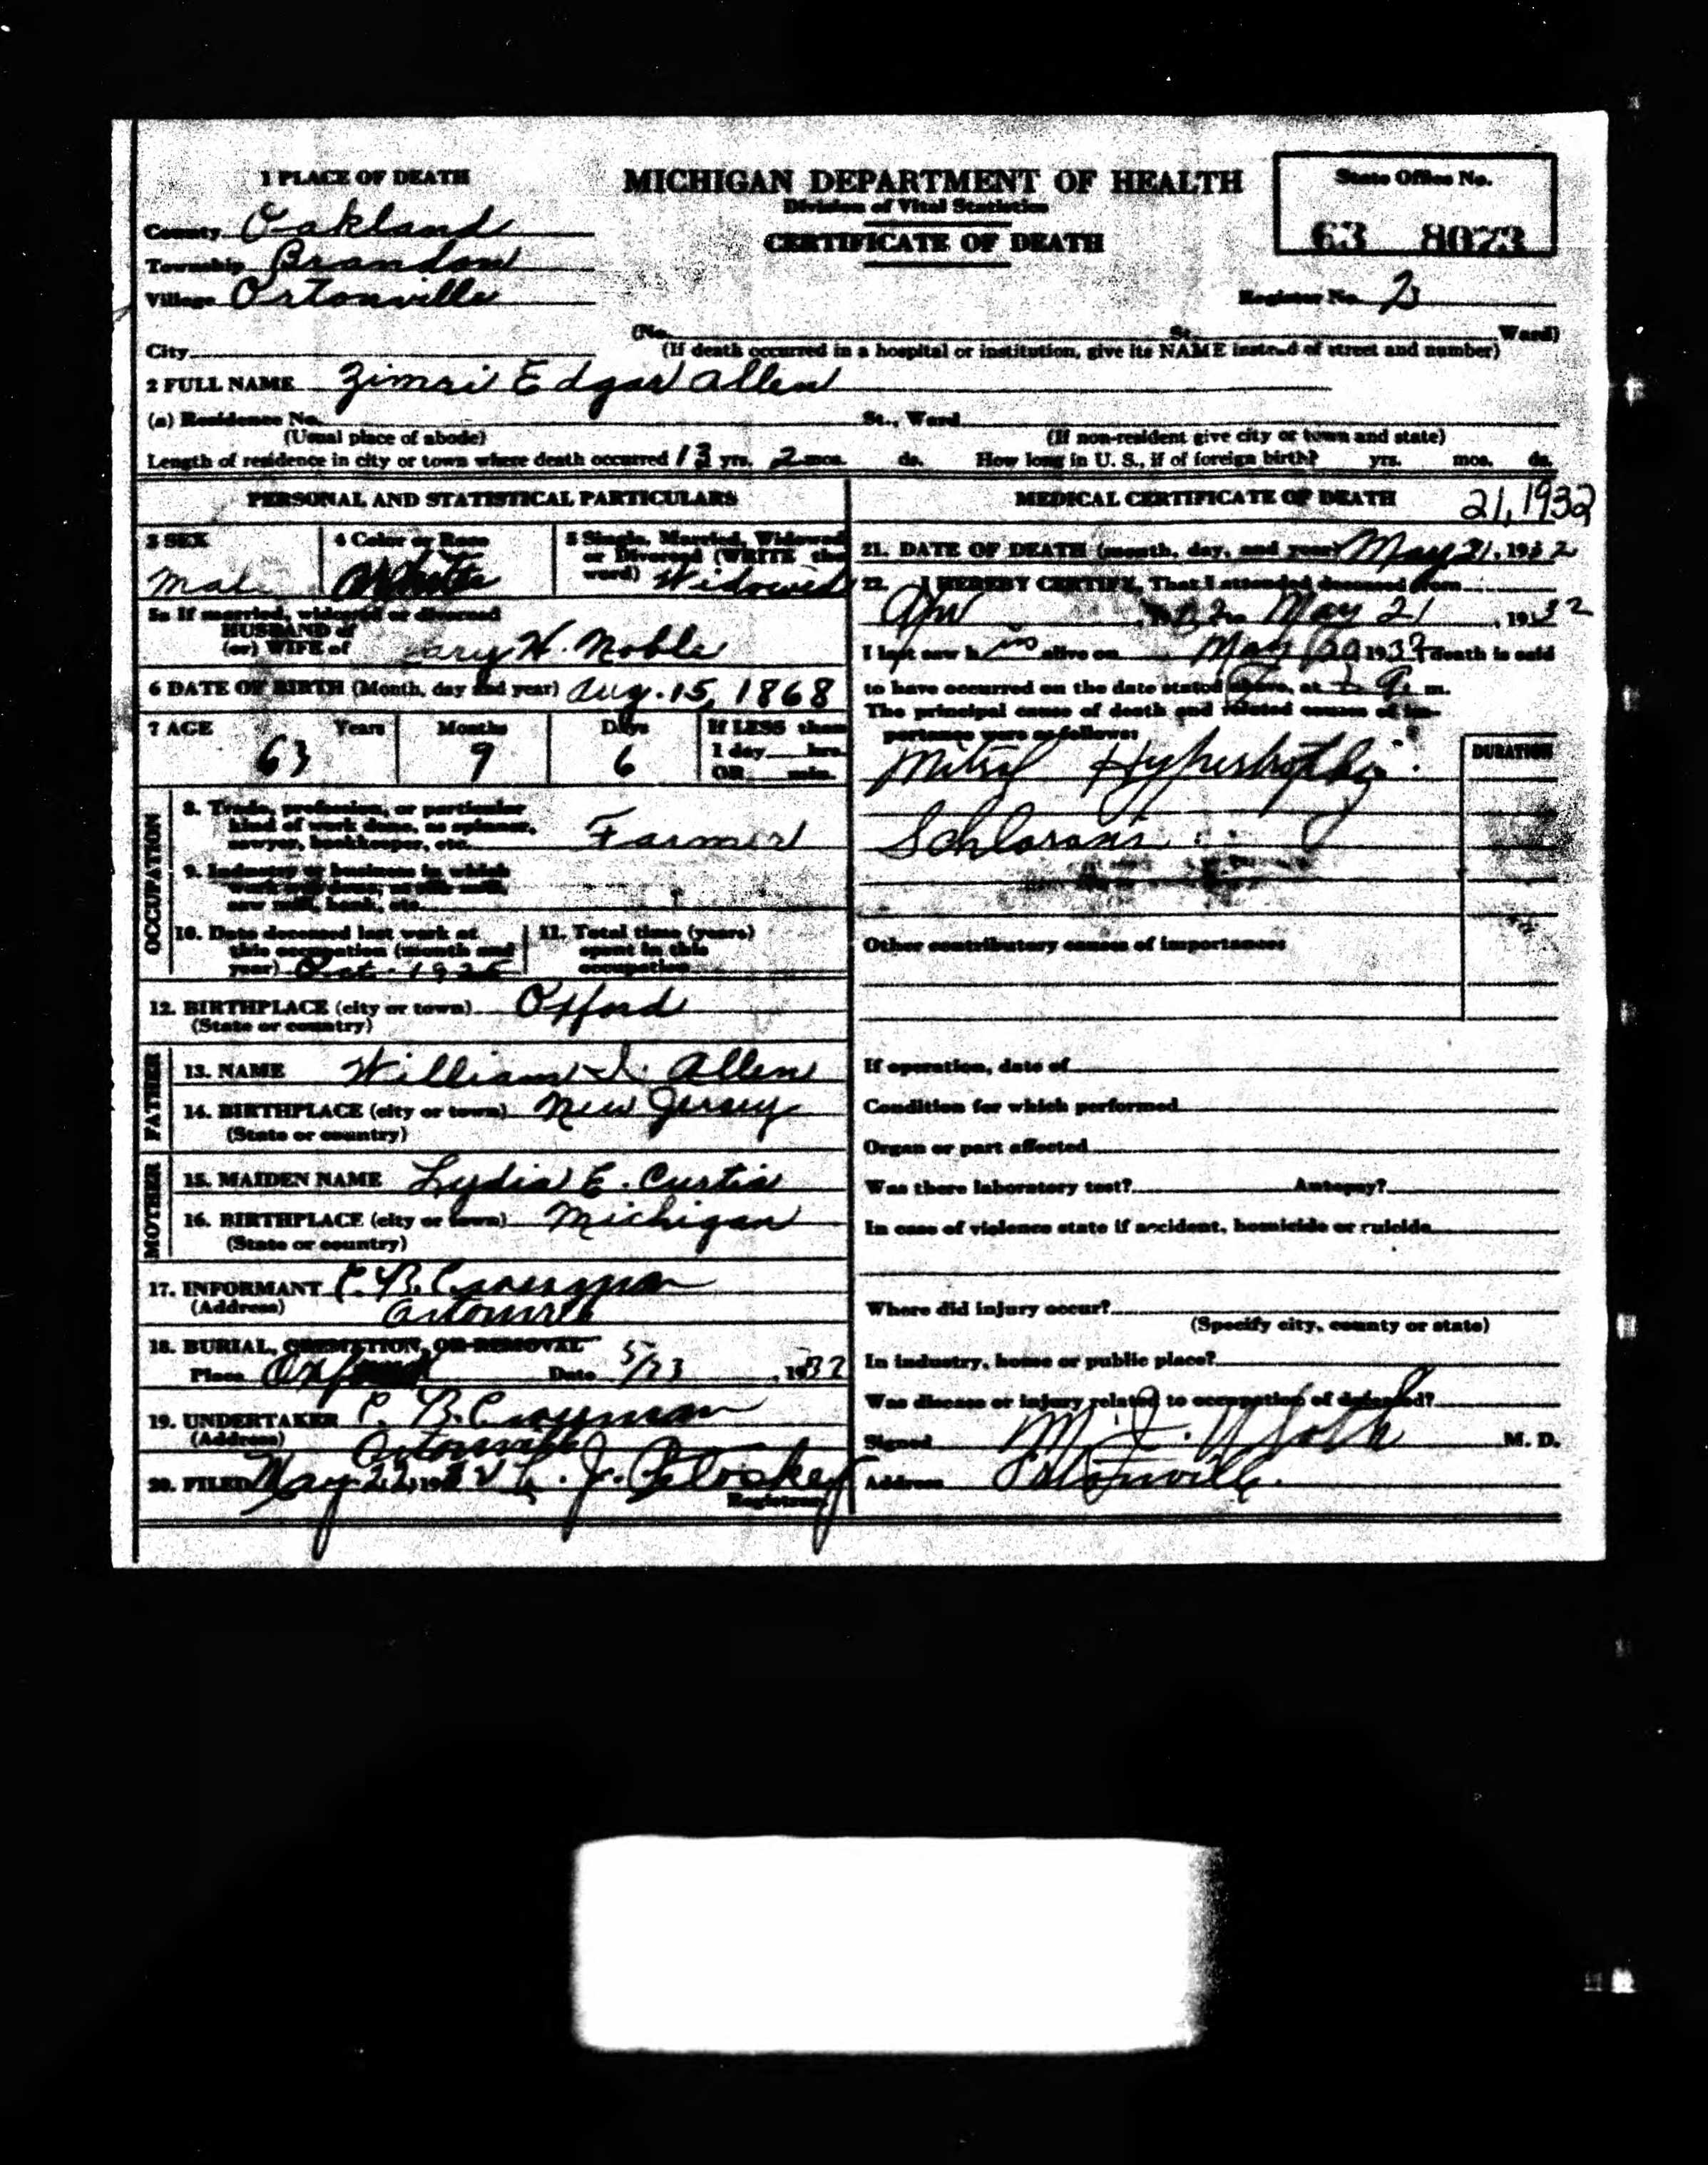 1 PLACE OF DEATH
MICHIGAN DEPARTMENT OF HEALTH
Division of Vital Statistics
CERTIFICATE OF DEATH
State Office No.
63 8073
County Oakland
Township Brandon
Village Ortonville
Register No. 2
(No. St. Ward)
City
(If death occurred in a hospital or institution, give its NAME instead of street and number)
2 FULL NAME Zimri Edgar Allen
(a) Residence No. St., Ward
(Usual place of abode) (If non-resident give city or town and state)
Length of residence in city or town where death occurred 13 yrs. 2 mos. ds. How long in U. S., if of foreign birth? yrs. mos. ds.
PERSONAL AND STATISTICAL PARTICULARS
3 SEX
Male
4 Color or Race
White
5 Single, Married, Widowed
or Divorced (WRITE the
word) Widowed
5a If married, widowed or divorced
HUSBAND of
(or) WIFE of ary H. Noble
6 DATE OF BIRTH (Month, day and year) Aug. 15, 1868
7 AGE Years Months Days If LESS than
63 9 6 1 day hrs.
OR min.
OCCUPATION
8. Trade, profession, or particular
kind of work done, as spinner,
sawyer, bookkeeper, etc. Farmer
9. Industry or business in which
work was done, as silk mill,
saw mill, bank, etc.
10. Date deceased last work at
this occupation (month and
year) Oct - 1925
11. Total time (years)
spent in this
occupation
12. BIRTHPLACE (city or town) Oxford
(State or country)
FATHER
13. NAME William I. Allen
14. BIRTHPLACE (city or town) New Jersey
(State or country)
MOTHER
15. MAIDEN NAME Lydia E. Curtis
16. BIRTHPLACE (city or town) Michigan
(State or country)
17. INFORMANT C. B.
(Address) Ortonville
18. BURIAL, CREMATION, OR REMOVAL
Place Oxford Date 5/23, 1932
19. UNDERTAKER C. B.
(Address) Ortonville
20. FILED May 22, 1932 L. J. Petoskey
Registrar
MEDICAL CERTIFICATE OF DEATH 21, 1932
21. DATE OF DEATH (month, day, and year) May 21, 1932
22. I HEREBY CERTIFY, That I attended deceased from
Apr to May 21, 1932
I last saw h im alive on May 20 1932 death is said
to have occurred on the date stated above, at m.
The principal cause of death and related causes of im-
portance were as follows:
DURATION
Mitral Hypertrophy.
Other contributory causes of importance:
If operation, date of
Condition for which performed
Organ or part affected
Was there laboratory test? Autopsy?
In case of violence state if accident, homicide or suicide
Where did injury occur?
(Specify city, county or state)
In industry, home or public place?
Was disease or injury related to occupation of deceased?
Signed M. D.
Address Ortonville.